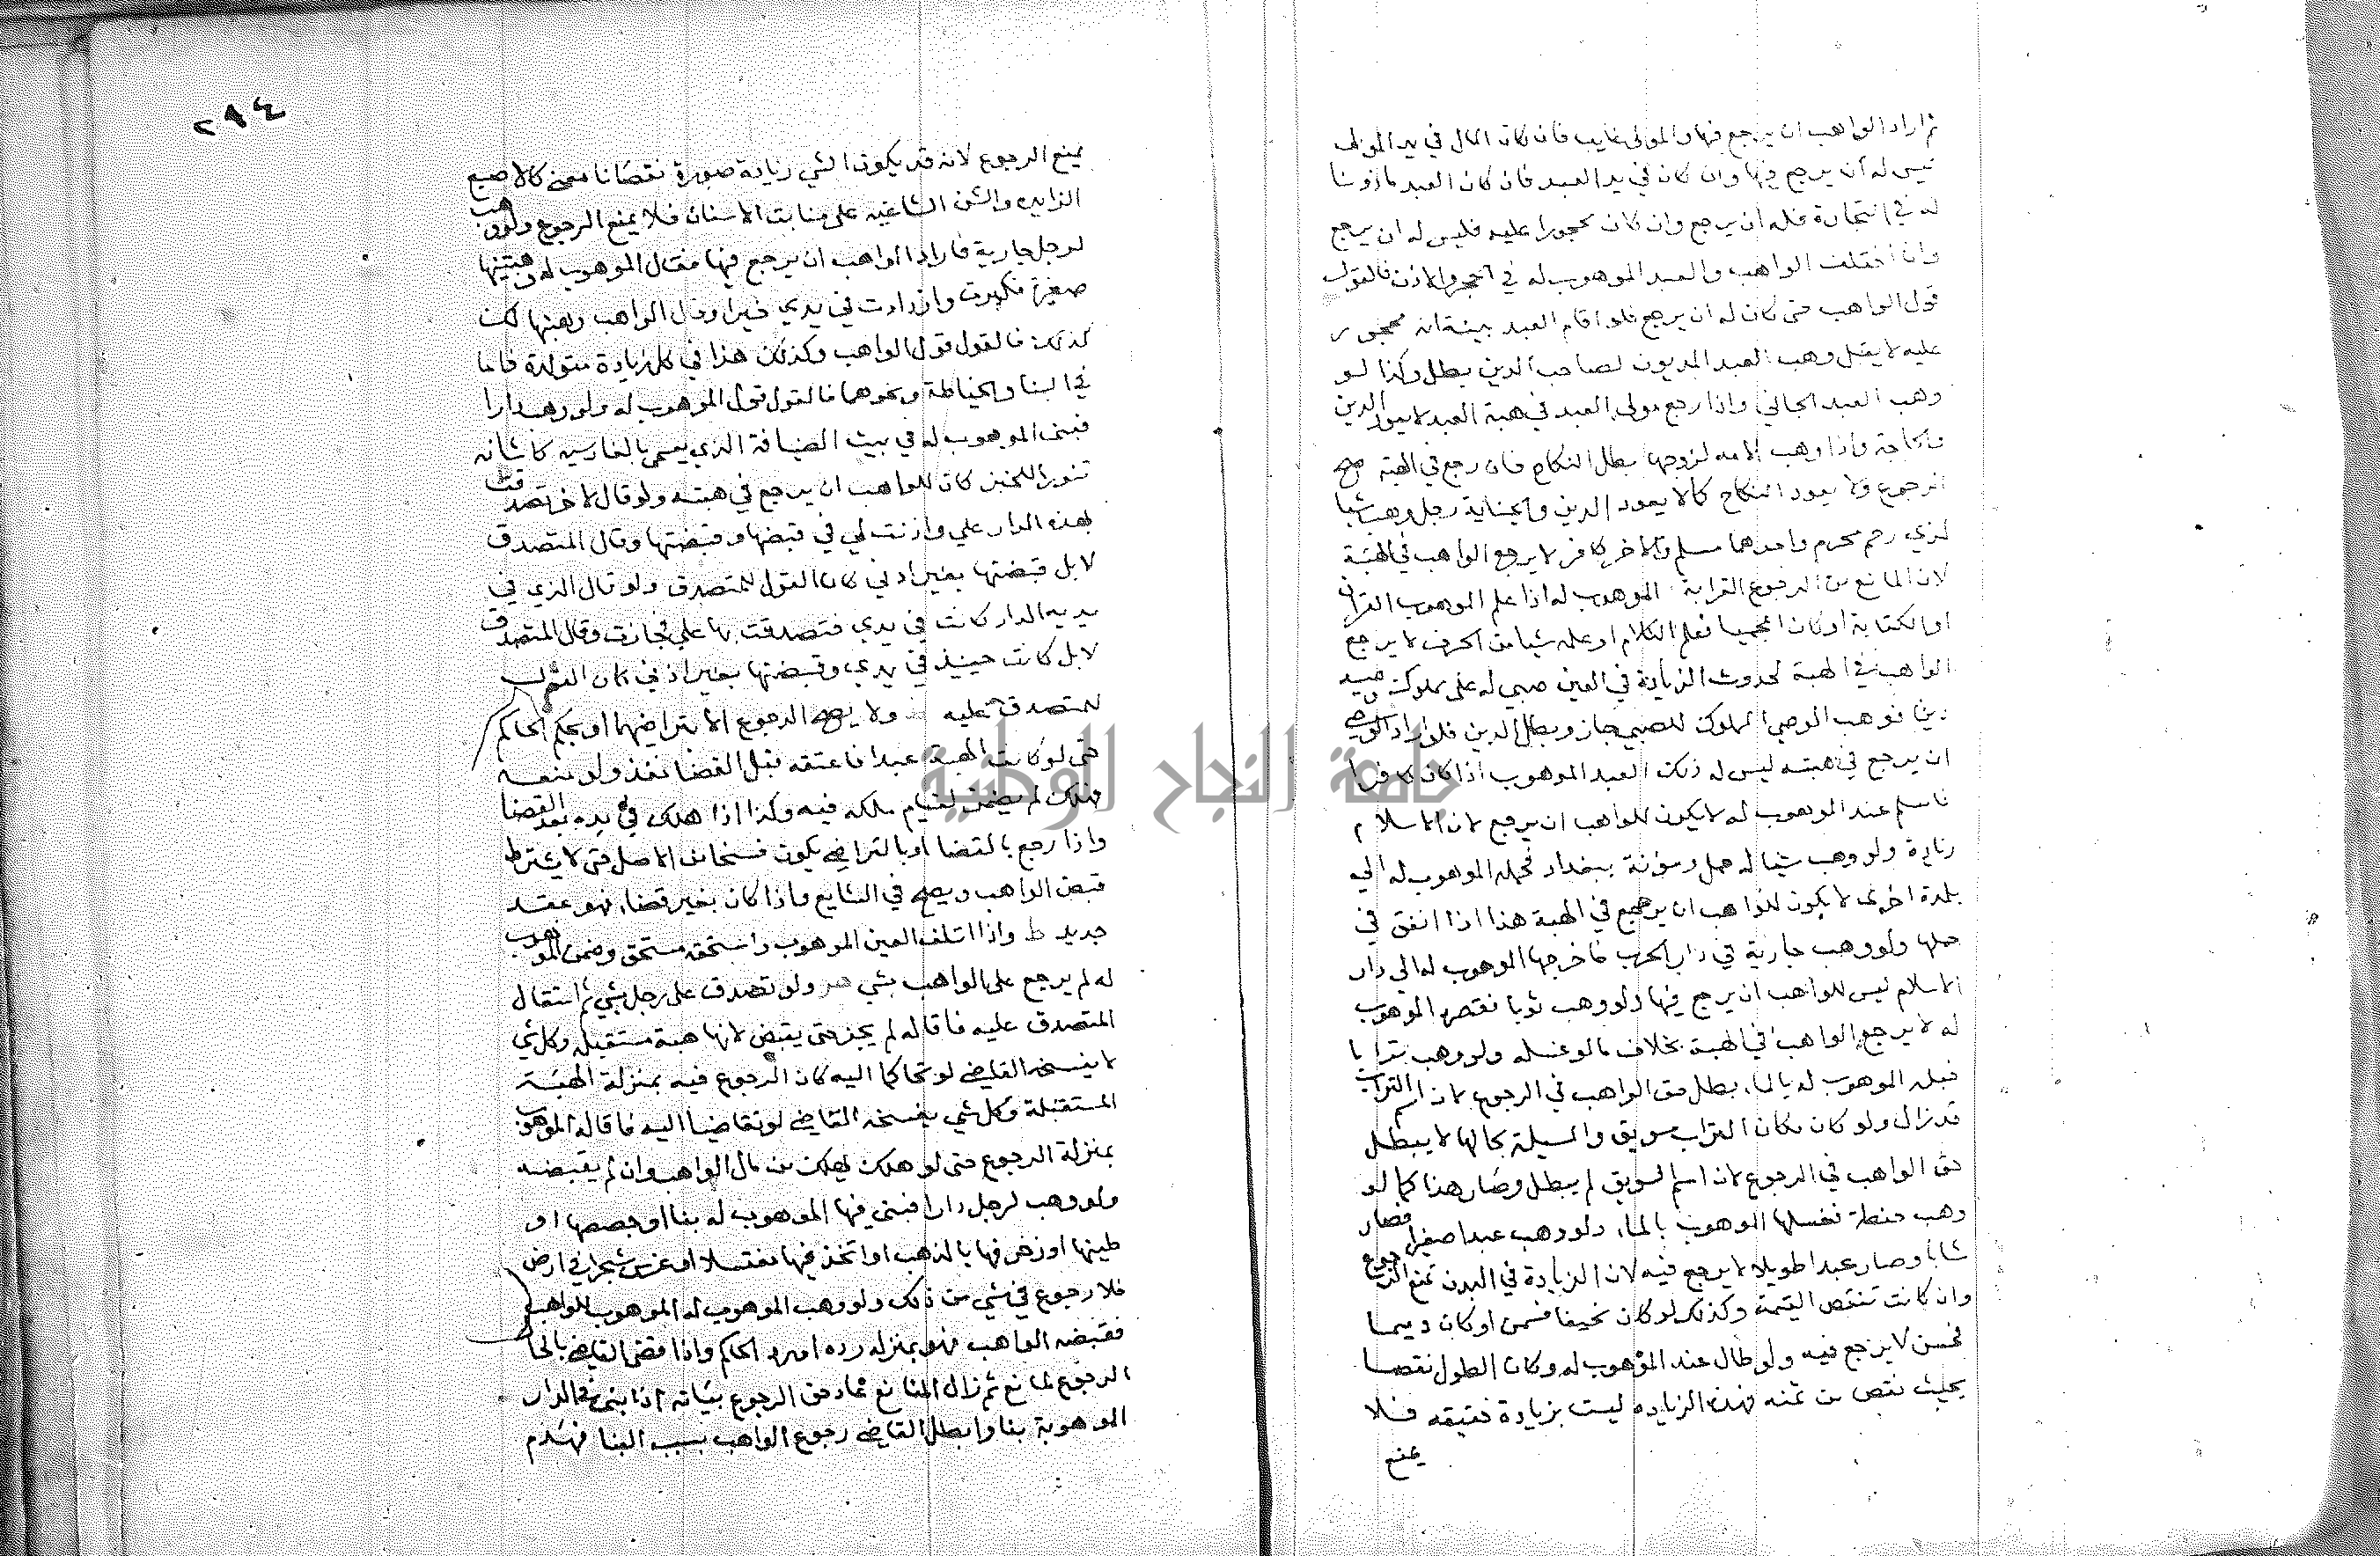 ثم اراد الواهب ان يرجع فيها والمولى غايب فان كان المال في يد المولى
ليس له ان يرجع فيها وان كان في يد العبد فان كان العبد ماذونا
له في التجارة فله ان يرجع وان كان محجورا عليه فليس له ان يرجع
وان اختلف الواهب والعبد الموهوب له في الحجر والاذن فالقول
قول الواهب حتى كان له ان يرجع فلو اقام العبد بينة انه محجور
عليه لا يقبل وهب العبد المديون لصاحب الدين بطل وكذا لو
وهب العبد الجاني واذا رجع مولى العبد في هبة العبد لا يعود الدين
والجناية واذا وهب الامة لزوجها بطل النكاح فان رجع في الهبة صح
الرجوع ولا يعود النكاح كما لا يعود الدين والجناية رجل وهب شيا
لذي رحم محرم واحدهما مسلم والاخر كافر لا يرجع الواهب في الهبة
لان المانع من الرجوع القرابة الموهوب له اذا علم الموهوب القران
او الكتابة او كان اعجميا فعلم الكلام او علمه شيا من الحرف لا يرجع
الواهب في الهبة لحدوث الزيادة في العين صبي له على مملوك وصيه
دين فوهب الوصي المملوك للصبي جاز وبطل الدين فلو اراد الوصي
ان يرجع في هبته ليس له ذلك العبد الموهوب اذا كان كافرا
فاسلم عند الموهوب له لا يكون للواهب ان يرجع لان الاسلام
زيادة ولو وهب شيا له حمل ومؤنة ببغداد فحمله الموهوب له الى
بلدة اخرى لا يكون للواهب ان يرجع في الهبة هذا اذا انفق في
حملها ولو وهب جارية في دار الحرب فاخرجها الموهوب له الى دار
الاسلام ليس للواهب ان يرجع فيها ولو وهب ثوبا فقصره الموهوب
له لا يرجع الواهب في الهبة بخلاف ما لو غسله ولو وهب ترابا
فبله الموهوب له بالماء بطل حق الواهب في الرجوع لان اسم التراب
قد زال ولو كان مكان التراب سويق والمسيلة بحالها لا يبطل
حق الواهب في الرجوع لان اسم السويق لم يبطل وصار هذا كما لو
وهب حنطة فغسلها الموهوب بالماء ولو وهب عبدا صغيرا فصار
شابا وصار عبدا طويلا لا يرجع فيه لان الزيادة في البدن تمنع الرجوع
وان كانت تنقص القيمة وكذلك لو كان نحيفا فسمن او كان دميما
فحسن لا يرجع فيه ولو طال عند الموهوب له وكان الطول نقصا
بحيث نقص من ثمنه فهذه الزيادة ليست بزيادة حقيقه فلا
يمنع
٢٩٤
يمنع الرجوع لانه قد يكون الشي زيادة صورة نقصانا معنى كالاصبع
الزايده والسن الشاغيه على منابت الاسنان فلا يمنع الرجوع ولو وهب
لرجل جارية فاراد الواهب ان يرجع فيها فقال الموهوب له وهبتنيها
صغيرة فكبرت وازدادت في يدي خيرا وقال الواهب وهبتها لك
كذلك فالقول قول الواهب وكذلك هذا في كل زيادة متولدة فاما
في البنا والخياطة ونحوهما فالقول قول الموهوب له ولو وهب دارا
فبنى الموهوب له في بيت الضيافة الذي يسمى بالفارسيه كاشانه
تنورا للخبز كان للواهب ان يرجع في هبته ولو قال لاخر تصدقت
بهذه الدار علي واذنت لي في قبضها وقبضتها وقال المتصدق
لا بل قبضتها بغير اذني كان القول للمتصدق ولو قال الذي في
يديه الدار كانت في يدي فتصدقت بها علي فجازت وقال المتصدق
لا بل كانت حينيذ في يدي وقبضتها بغير اذني كان القول
للمتصدق عليه ولا يصح الرجوع الا بتراضيهما او بحكم الحاكم
حتى لو كانت الهبة عبدا فاعتقه قبل القضا نفذ ولو منعه
فهلك لم يضمن لقيام ملكه فيه وكذا اذا هلك في يده بعد القضا
واذا رجع بالقضا او بالتراضي يكون فسخا من الاصل حتى لا يشترط
قبض الواهب ويصح في الشايع واذا كان بغير قضا فهو عقد
جديد ط واذا اتلف العين الموهوب واستحقه مستحق وضمن الموهوب
له لم يرجع على الواهب بشي ولو تصدق على رجل بشي ثم استقال
المتصدق عليه فاقاله لم يجز حتى يقبض لانها هبة مستقبله وكل شي
لا يفسخه القاضي لو تحاكما اليه كان الرجوع فيه بمنزلة الهبة
المستقبلة وكل شي يفسخه القاضي لو تقاضيا اليه فاقاله الموهوب
بمنزلة الرجوع حتى لو هلك يهلك من مال الواهب وان لم يقبضه
ولو وهب لرجل دارا فبنى فيها الموهوب له بنا او جصصها او
طينها او زخرفها بالذهب او اتخذ فيها مغتسلا او غرس شجرا في ارض
فلا رجوع في شي من ذلك ولو وهب الموهوب له الموهوب للواهب
فقبضه الواهب فهو بمنزلة رده او رد الحاكم واذا قضى القاضي بالغا
الرجوع لمانع ثم زال المانع عاد حق الرجوع بيانه اذا بنى في الدار
الموهوبة بنا وابطل القاضي رجوع الواهب بسبب البنا فهدم
جامعة النجاح الوطنية